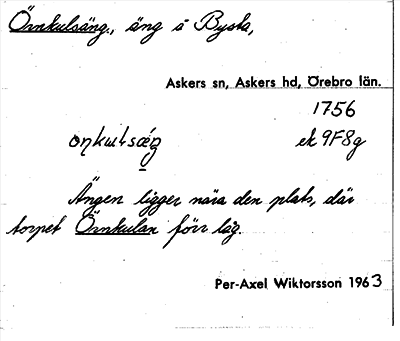 Örnkulsäng., äng å Bysta,
Askers sn, Askers hd, Örebro län.
1756
ek 9F8g
Ängen ligger nära den plats, där
torpet Örnkulan förr låg.
Per-Axel Wiktorsson 1963